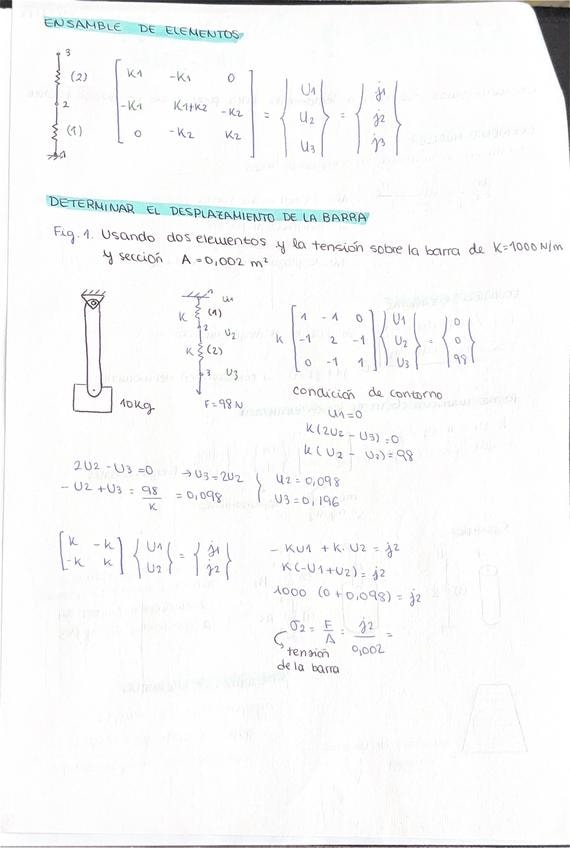 ENSAMBLE DE ELEMENTOS
3
(2)
2
(1)
K1 -K1 0
-K1 K1+K2 -K2
0 -K2 K2
=
U1
U2
U3
=
j1
j2
j3
DETERMINAR EL DESPLAZAMIENTO DE LA BARRA
Fig. 1. Usando dos elementos y la tensión sobre la barra de K=1000 N/m
y sección A = 0,002 m²
10Kg
U1
K (1)
2 U2
K (2)
3 U3
F=98N
K
1 -1 0
-1 2 -1
0 -1 1
U1
U2
U3
=
0
0
98
condición de contorno
U1=0
K(2U2 - U3)=0
K(U2 - U2)=98
2U2 - U3 =0 → U3 = 2U2
- U2 + U3 = 98/K = 0,098
U2 = 0,098
U3 = 0,196
K -K
-K K
U1
U2
=
j1
j2
- KU1 + K· U2 = j2
K(-U1+U2) = j2
1000 (0+0,098) = j2
σ2 = F/A = j2/0,002 =
tensión
de la barra